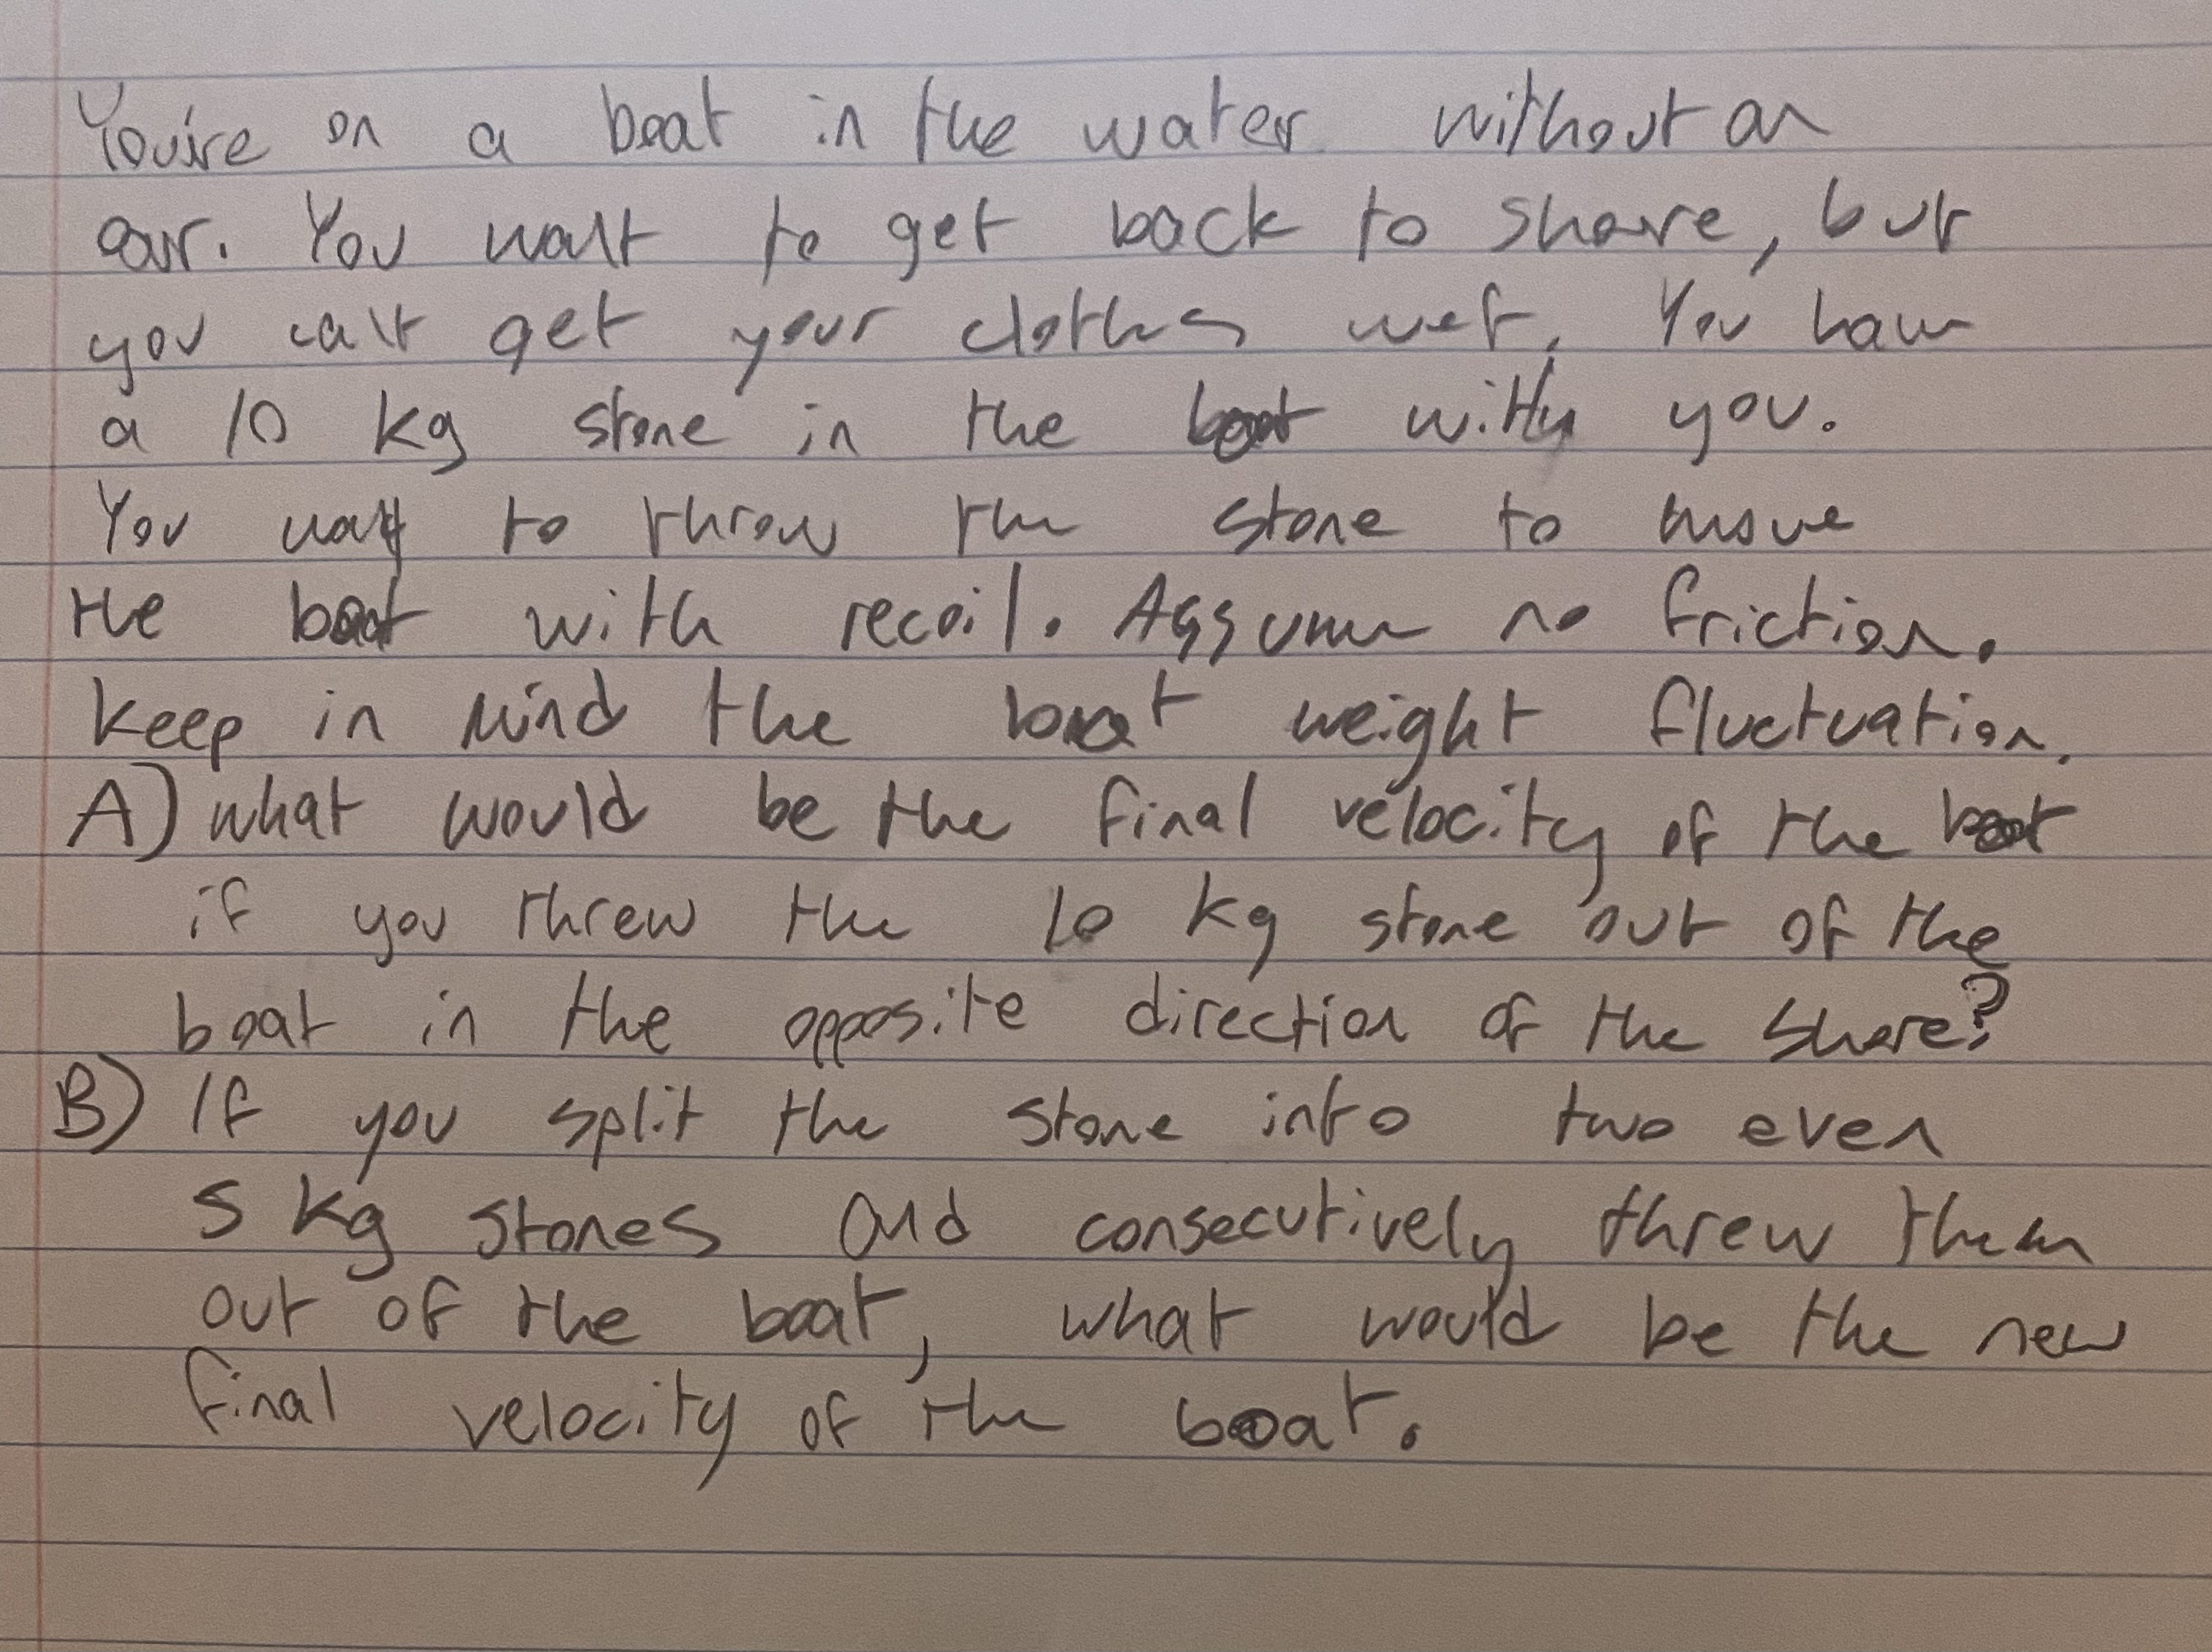 You're on a boat in the water without an
oar. You want to get back to shore, but
you can't get your clothes wet. You have
a 10 kg stone in the boat with you.
You want to throw the stone to move
the boat with recoil. Assume no friction.
Keep in mind the boat weight fluctuation.
A) what would be the final velocity of the boat
if you threw the 10 kg stone out of the
boat in the opposite direction of the shore?
B) If you split the stone into two even
5 kg stones and consecutively threw them
out of the boat, what would be the new
final velocity of the boat.